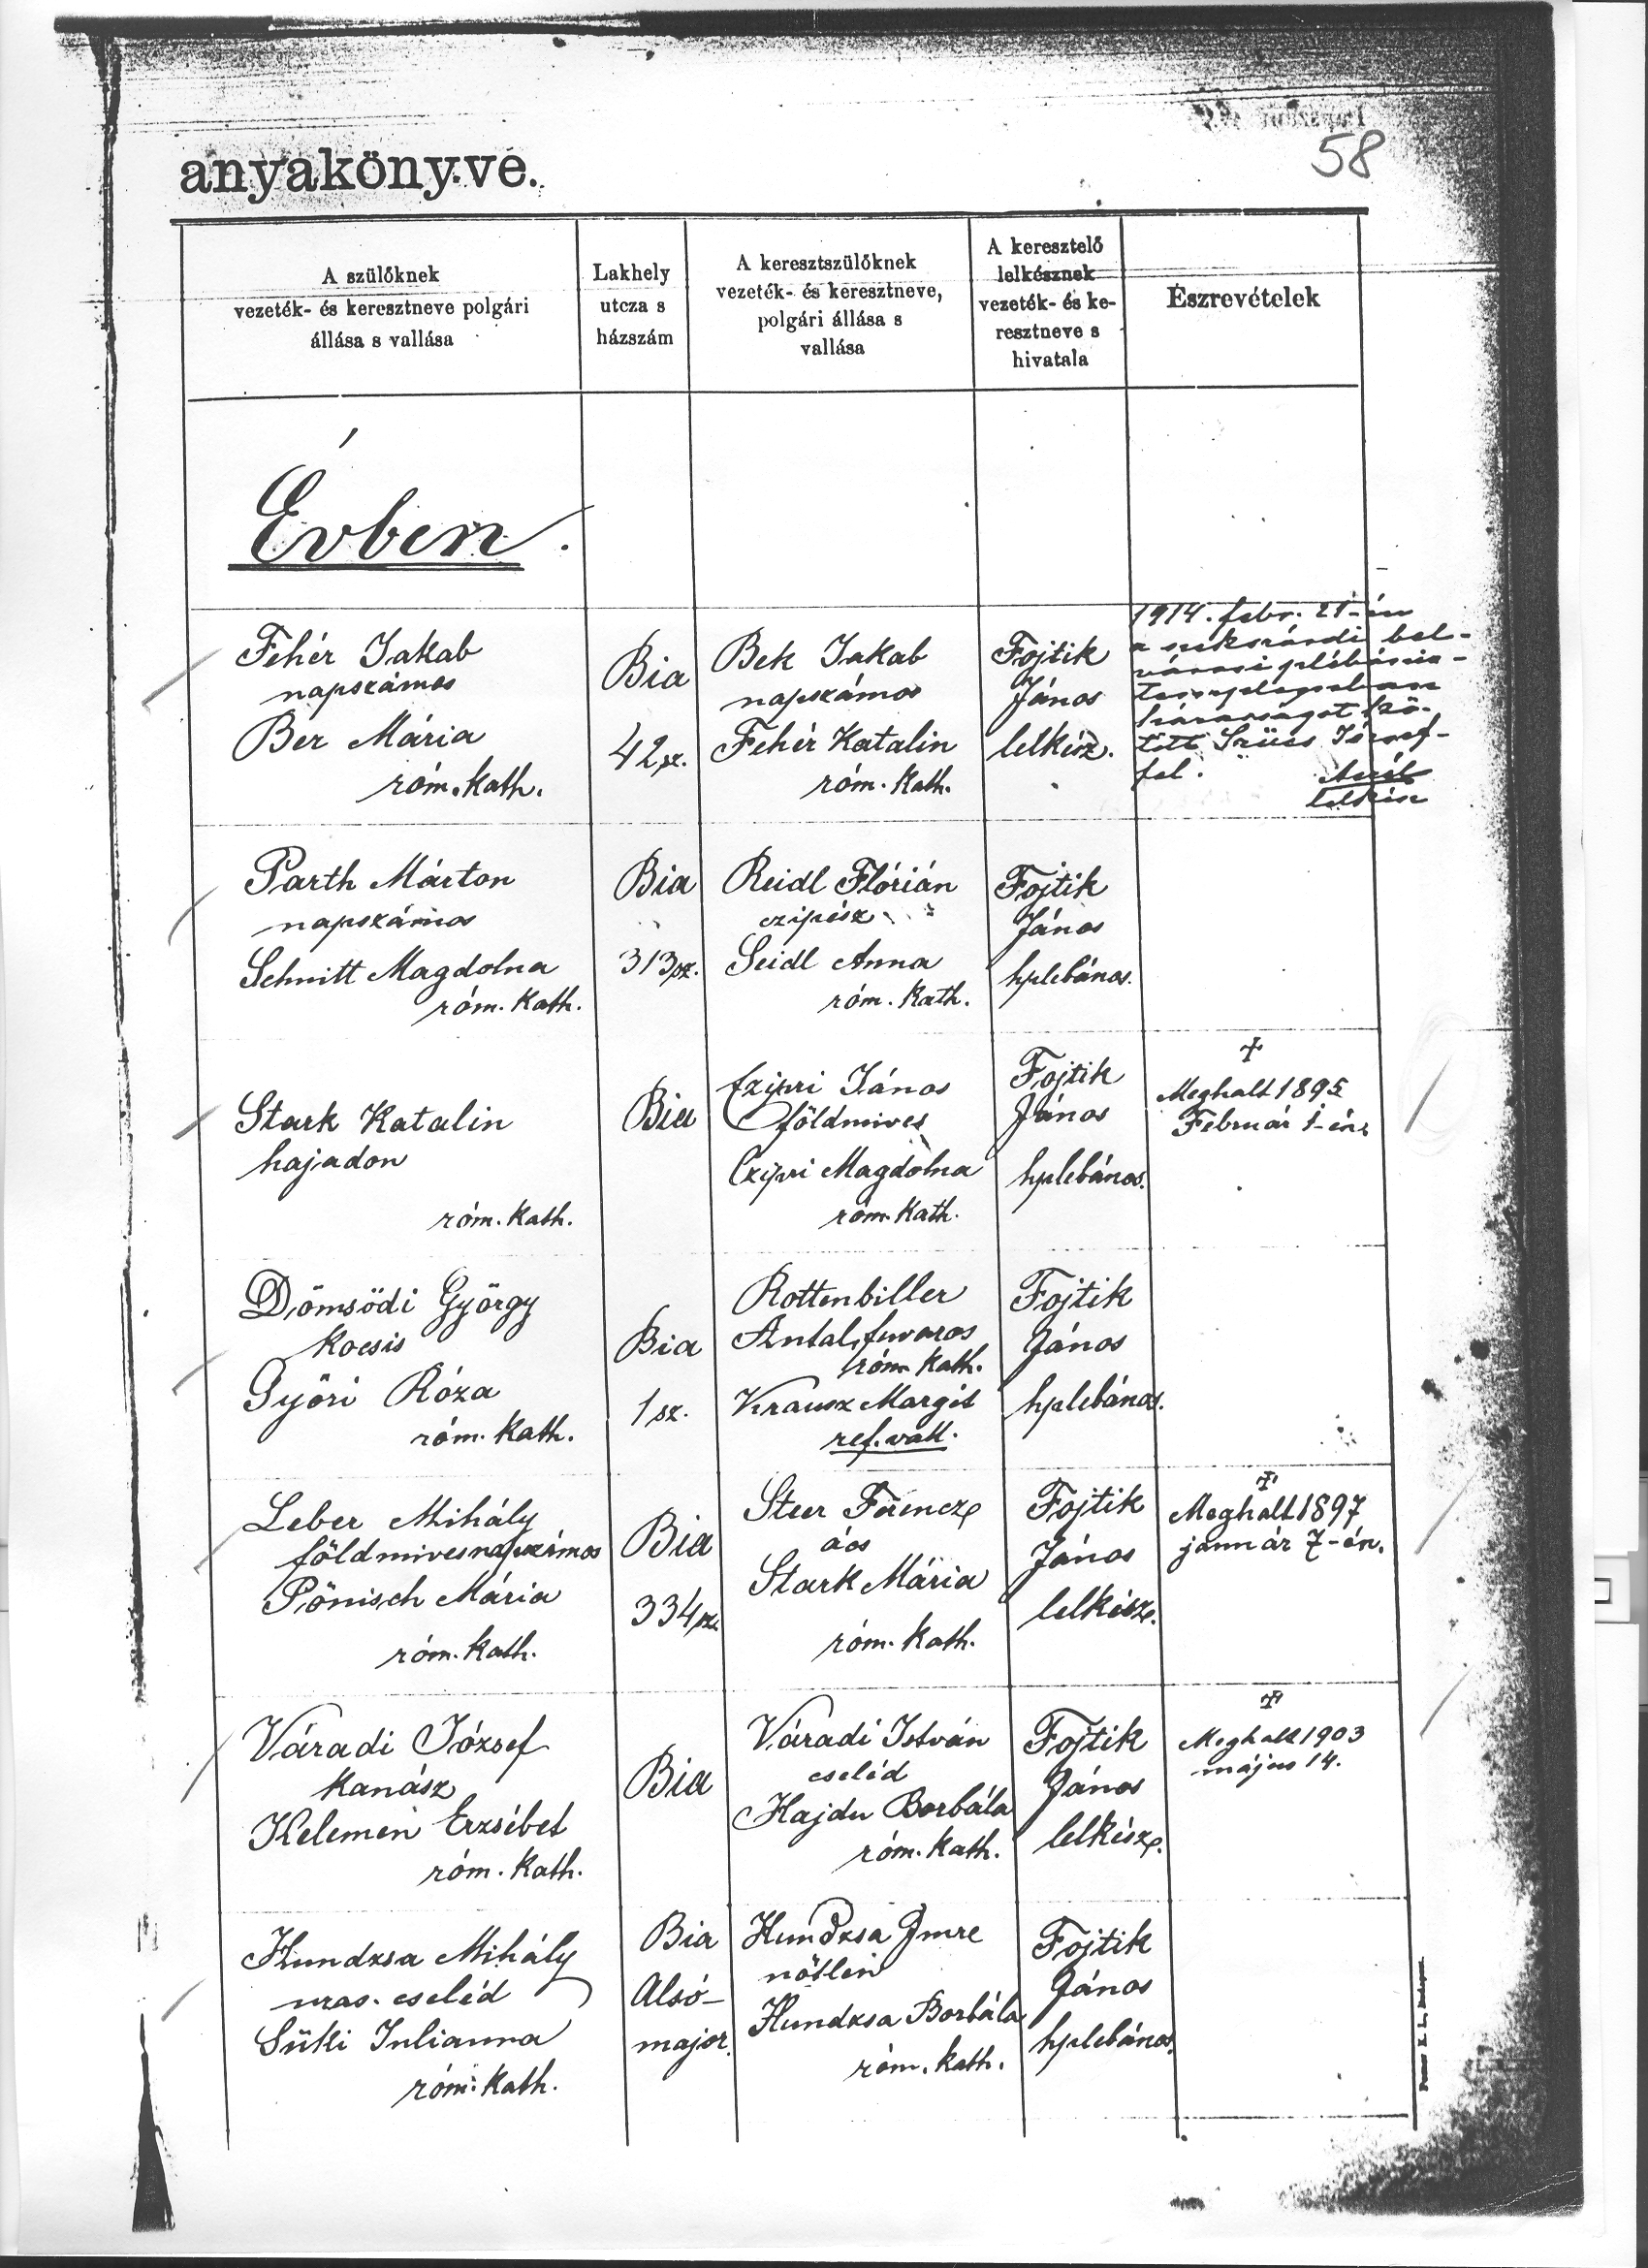 58
anyakönyve.
A szülőknek
vezeték- és keresztneve polgári
állása s vallása
Lakhely
utcza s
házszám
A keresztszülőknek
vezeték- és keresztneve,
polgári állása s
vallása
A keresztelő
lelkésznek
vezeték- és ke-
resztneve s
hivatala
Észrevételek
Évben.
Fehér Jakab
napszámos
Ber Mária
róm. kath.
Bia
42 sz.
Bek Jakab
napszámos
Fehér Katalin
róm. kath.
Fojtik
János
lelkész.
1914. febr. 21-én
a szekszárdi bel-
városi plébánia-
templomban
házasságot kö-
tött Szücs József-
fel.
lelkész
Parth Márton
napszámos
Schnitt Magdolna
róm. kath.
Bia
313 sz.
Reidl Flórián
czipész
Seidl Anna
róm. kath.
Fojtik
János
hplebános.
Stark Katalin
hajadon
róm. kath.
Bia
Czipri János
földmives
Czipri Magdolna
róm. kath.
Fojtik
János
hplebános.
Meghalt 1895
Február 1-én.
Dömsödi György
kocsis
Győri Róza
róm. kath.
Bia
1 sz.
Rottenbiller
Antal, fuvaros
róm. kath.
Krausz Margit
ref. vall.
Fojtik
János
hplebános.
Leber Mihály
földmivesnapszámos
Pönisch Mária
róm. kath.
Bia
334 sz.
Steer Ferencz
ács
Stark Mária
róm. kath.
Fojtik
János
lelkész.
Meghalt 1897
január 7-én.
Váradi József
kanász
Kelemen Erzsébet
róm. kath.
Bia
Váradi István
cseléd
Hajdu Borbála
róm. kath.
Fojtik
János
lelkész.
Meghalt 1903
május 14.
Hundzsa Mihály
uras. cseléd
Süki Julianna
róm. kath.
Bia
Alsó-
major.
Hundzsa Imre
nőtlen
Hundzsa Borbála
róm. kath.
Fojtik
János
hplebános.